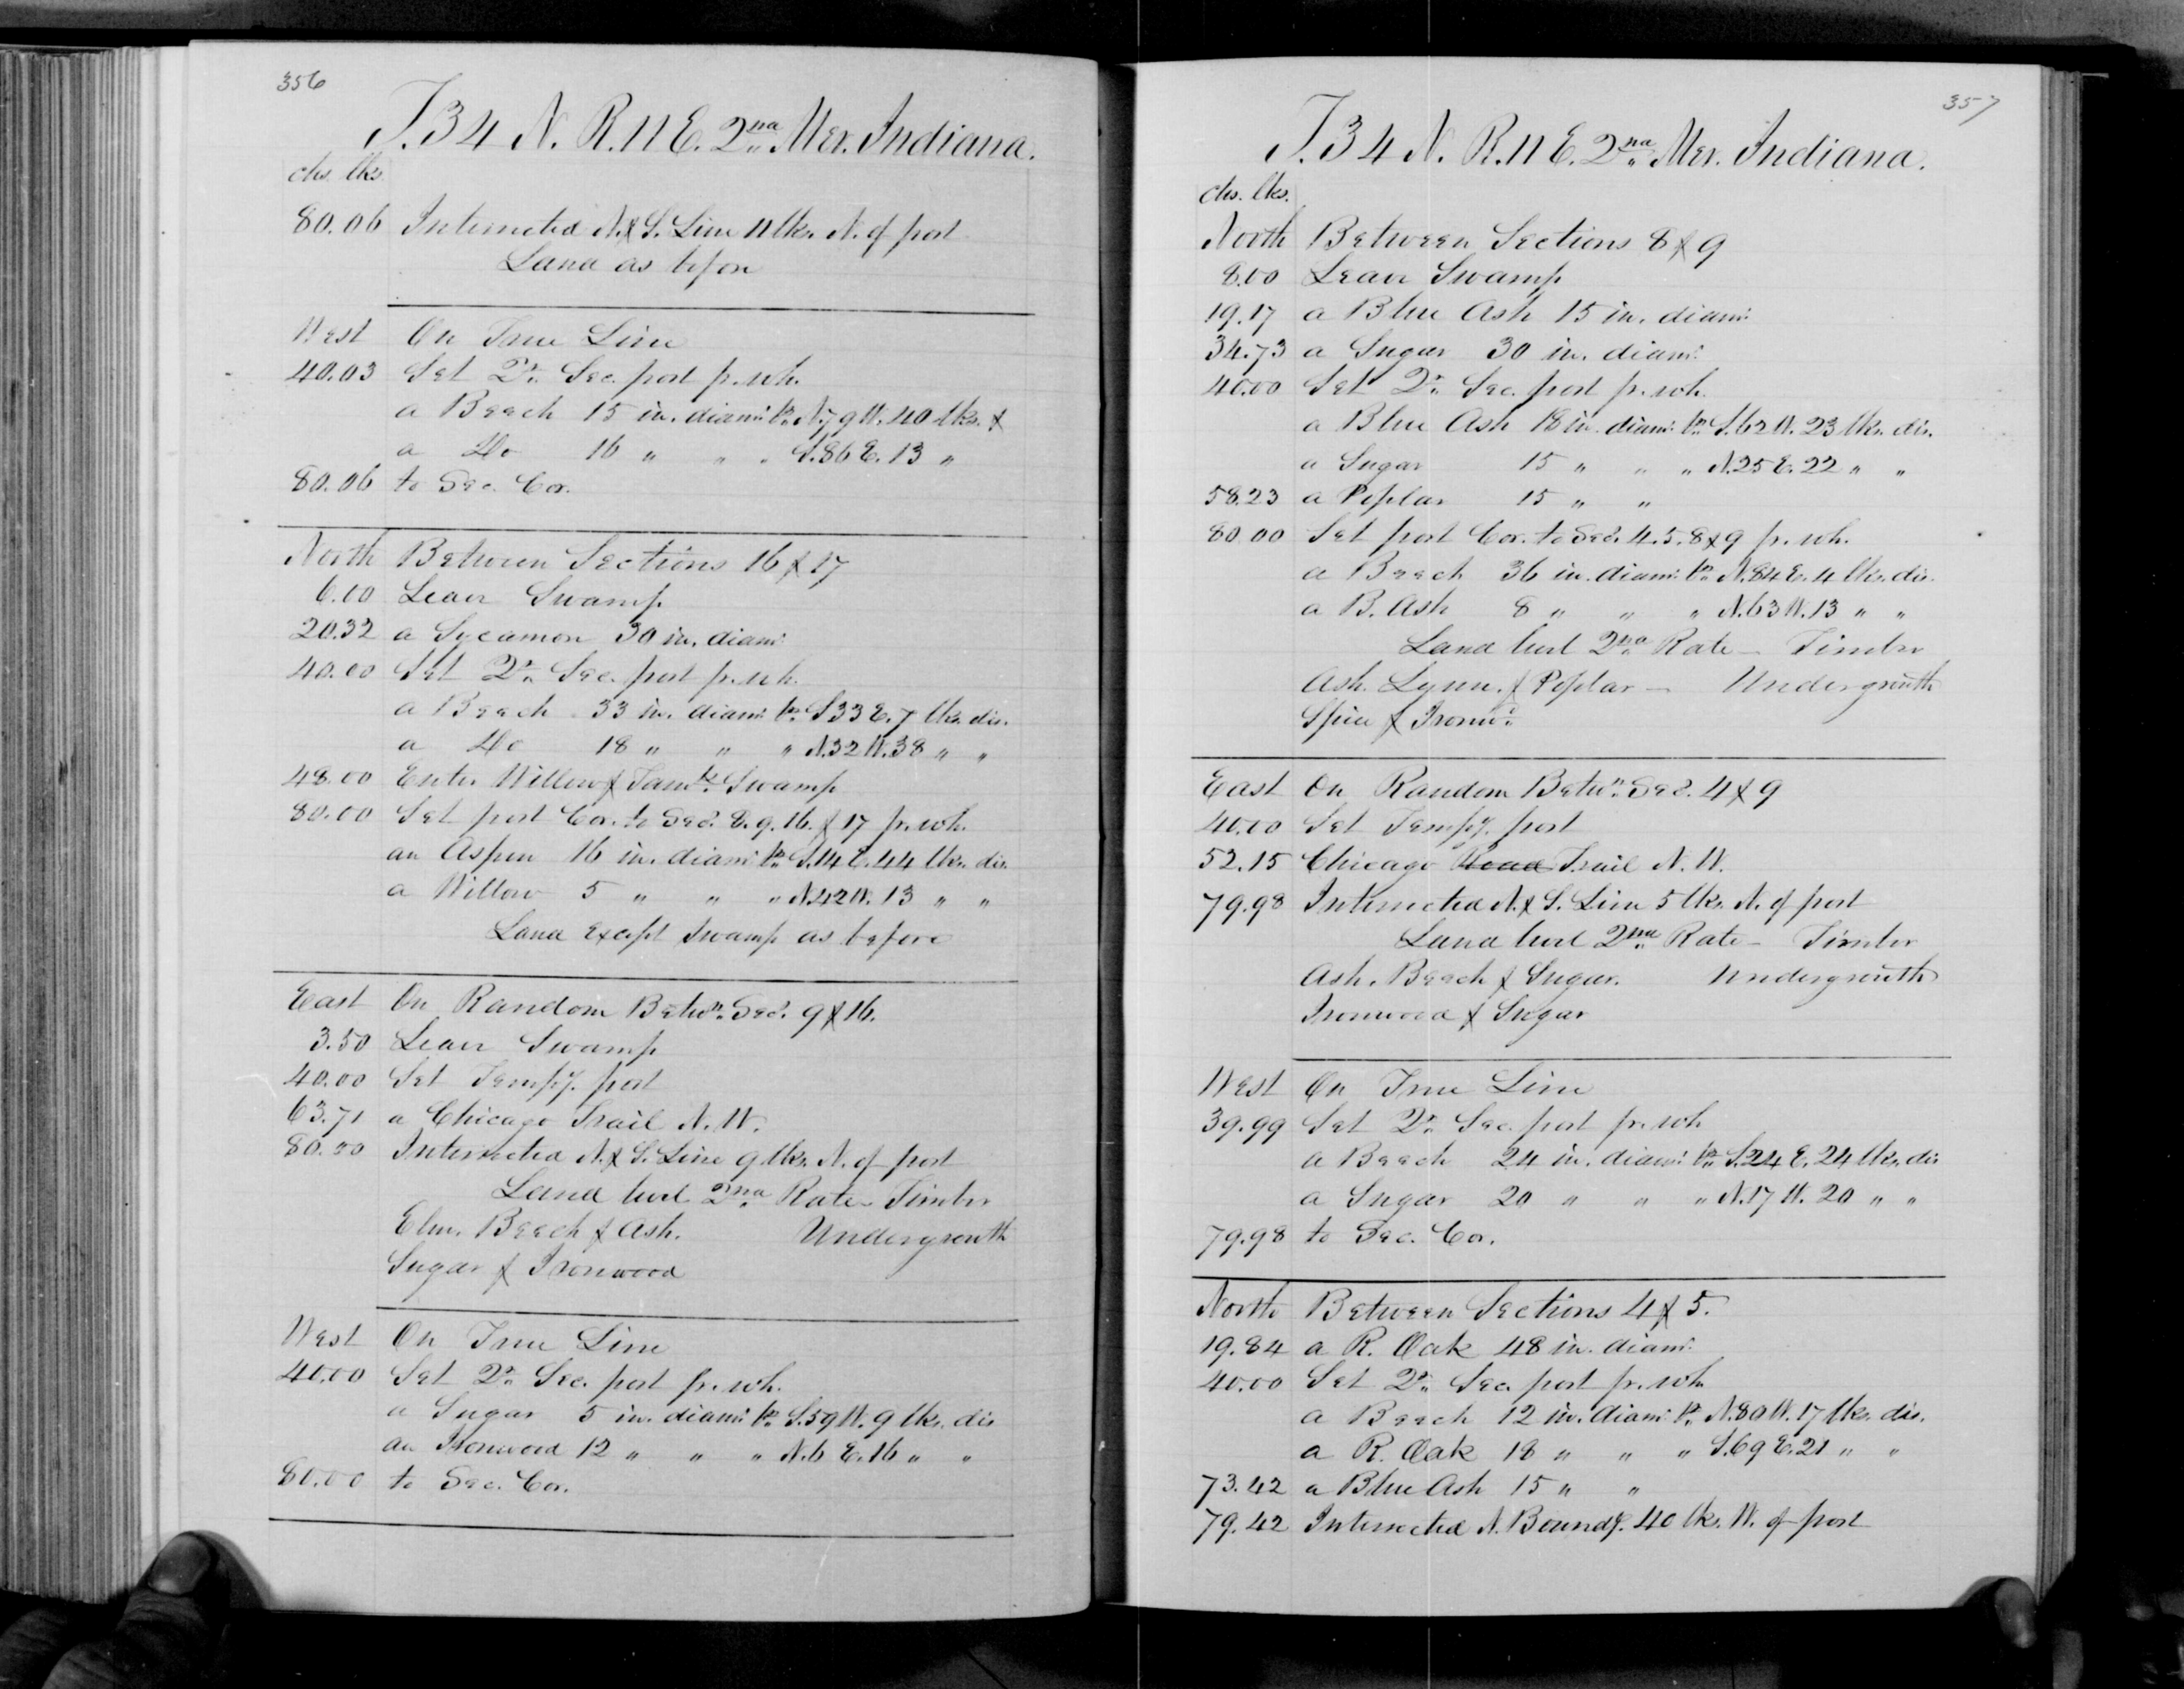 356
T. 34 N. R. 11 E. 2nd Mer. Indiana.
chs. lks.
80.06 Intersected N. & S. Line 11 lks. N. of post
Land as before
West On True Line
40.03 Set Qr. Sec. post fr. wh.
a Beech 15 in. diam: br. N. 79 W. 40 lks. &
a Do 16 " " " S. 86 E. 13 "
80.06 to Sec. Cor.
North Between Sections 16 & 17
6.00 Leave Swamp
20.32 a Sycamore 30 in. diam:
40.00 Set Qr. Sec. post fr. wh.
a Beech 33 in. diam: br. S. 33 E. 7 lks. dis.
a Do 18 " " " N. 32 W. 38 " "
48.00 Enter Willow & Tamk. Swamp
80.00 Set post Cor. to Secs. 8. 9. 16. & 17 fr. wh.
an Aspen 16 in. diam: br. S. 14 E. 44 lks. dis.
a Willow 5 " " " N. 42 W. 13 " "
Land except Swamp as before
East On Random Betwn. Secs. 9 & 16.
3.50 Leave Swamp
40.00 Set Tempy. post
63.71 a Chicago Trail N. W.
80.00 Intersected N. & S. Line 9 lks. N. of post
Land level 2nd Rate - Timber
Elm, Beech & Ash. Undergrowth
Sugar & Ironwood
West On True Line
40.00 Set Qr. Sec. post fr. wh.
a Sugar 5 in. diam: br. S. 59 W. 9 lks. dis
an Ironwood 12 " " " N. 6 E. 16 " "
80.00 to Sec. Cor.
357
T. 34 N. R. 11 E. 2nd Mer. Indiana.
chs. lks.
North Between Sections 8 & 9
8.00 Leave Swamp
19.17 a Blue Ash 15 in. diam:
34.73 a Sugar 30 in. diam:
40.00 Set Qr. Sec. post fr. wh.
a Blue Ash 18 in. diam: br. S. 62 W. 23 lks. dis.
a Sugar 15 " " " N. 25 E. 22 " "
58.23 a Poplar 15 " "
80.00 Set post Cor. to Secs. 4. 5. 8 & 9 fr. wh.
a Beech 36 in. diam: br. N. 84 E. 4 lks. dis.
a B. Ash 8 " " " N. 63 W. 13 " "
Land level 2nd Rate - Timber
Ash. Lynn. & Poplar - Undergrowth
Spice & Ironwd.
East On Random Betwn. Secs. 4 & 9
40.00 Set Tempy. post
52.15 Chicago Road Trail N. W.
79.98 Intersected N. & S. Line 5 lks. N. of post
Land level 2nd Rate - Timber
Ash. Beech & Sugar. Undergrowth
Ironwood & Sugar
West On True Line
39.99 Set Qr. Sec. post fr. wh
a Beech 24 in. diam: br. S. 24 E. 24 lks. dis
a Sugar 20 " " " N. 17 W. 20 " "
79.98 to Sec. Cor.
North Between Sections 4 & 5.
19.84 a R. Oak 48 in. diam:
40.00 Set Qr. Sec. post fr. wh
a Beech 12 in. diam: br. N. 80 W. 17 lks. dis.
a R. Oak 18 " " " S. 69 E. 21 " "
73.42 a Blue Ash 15 " "
79.42 Intersected N. Boundy. 40 lks. W. of post